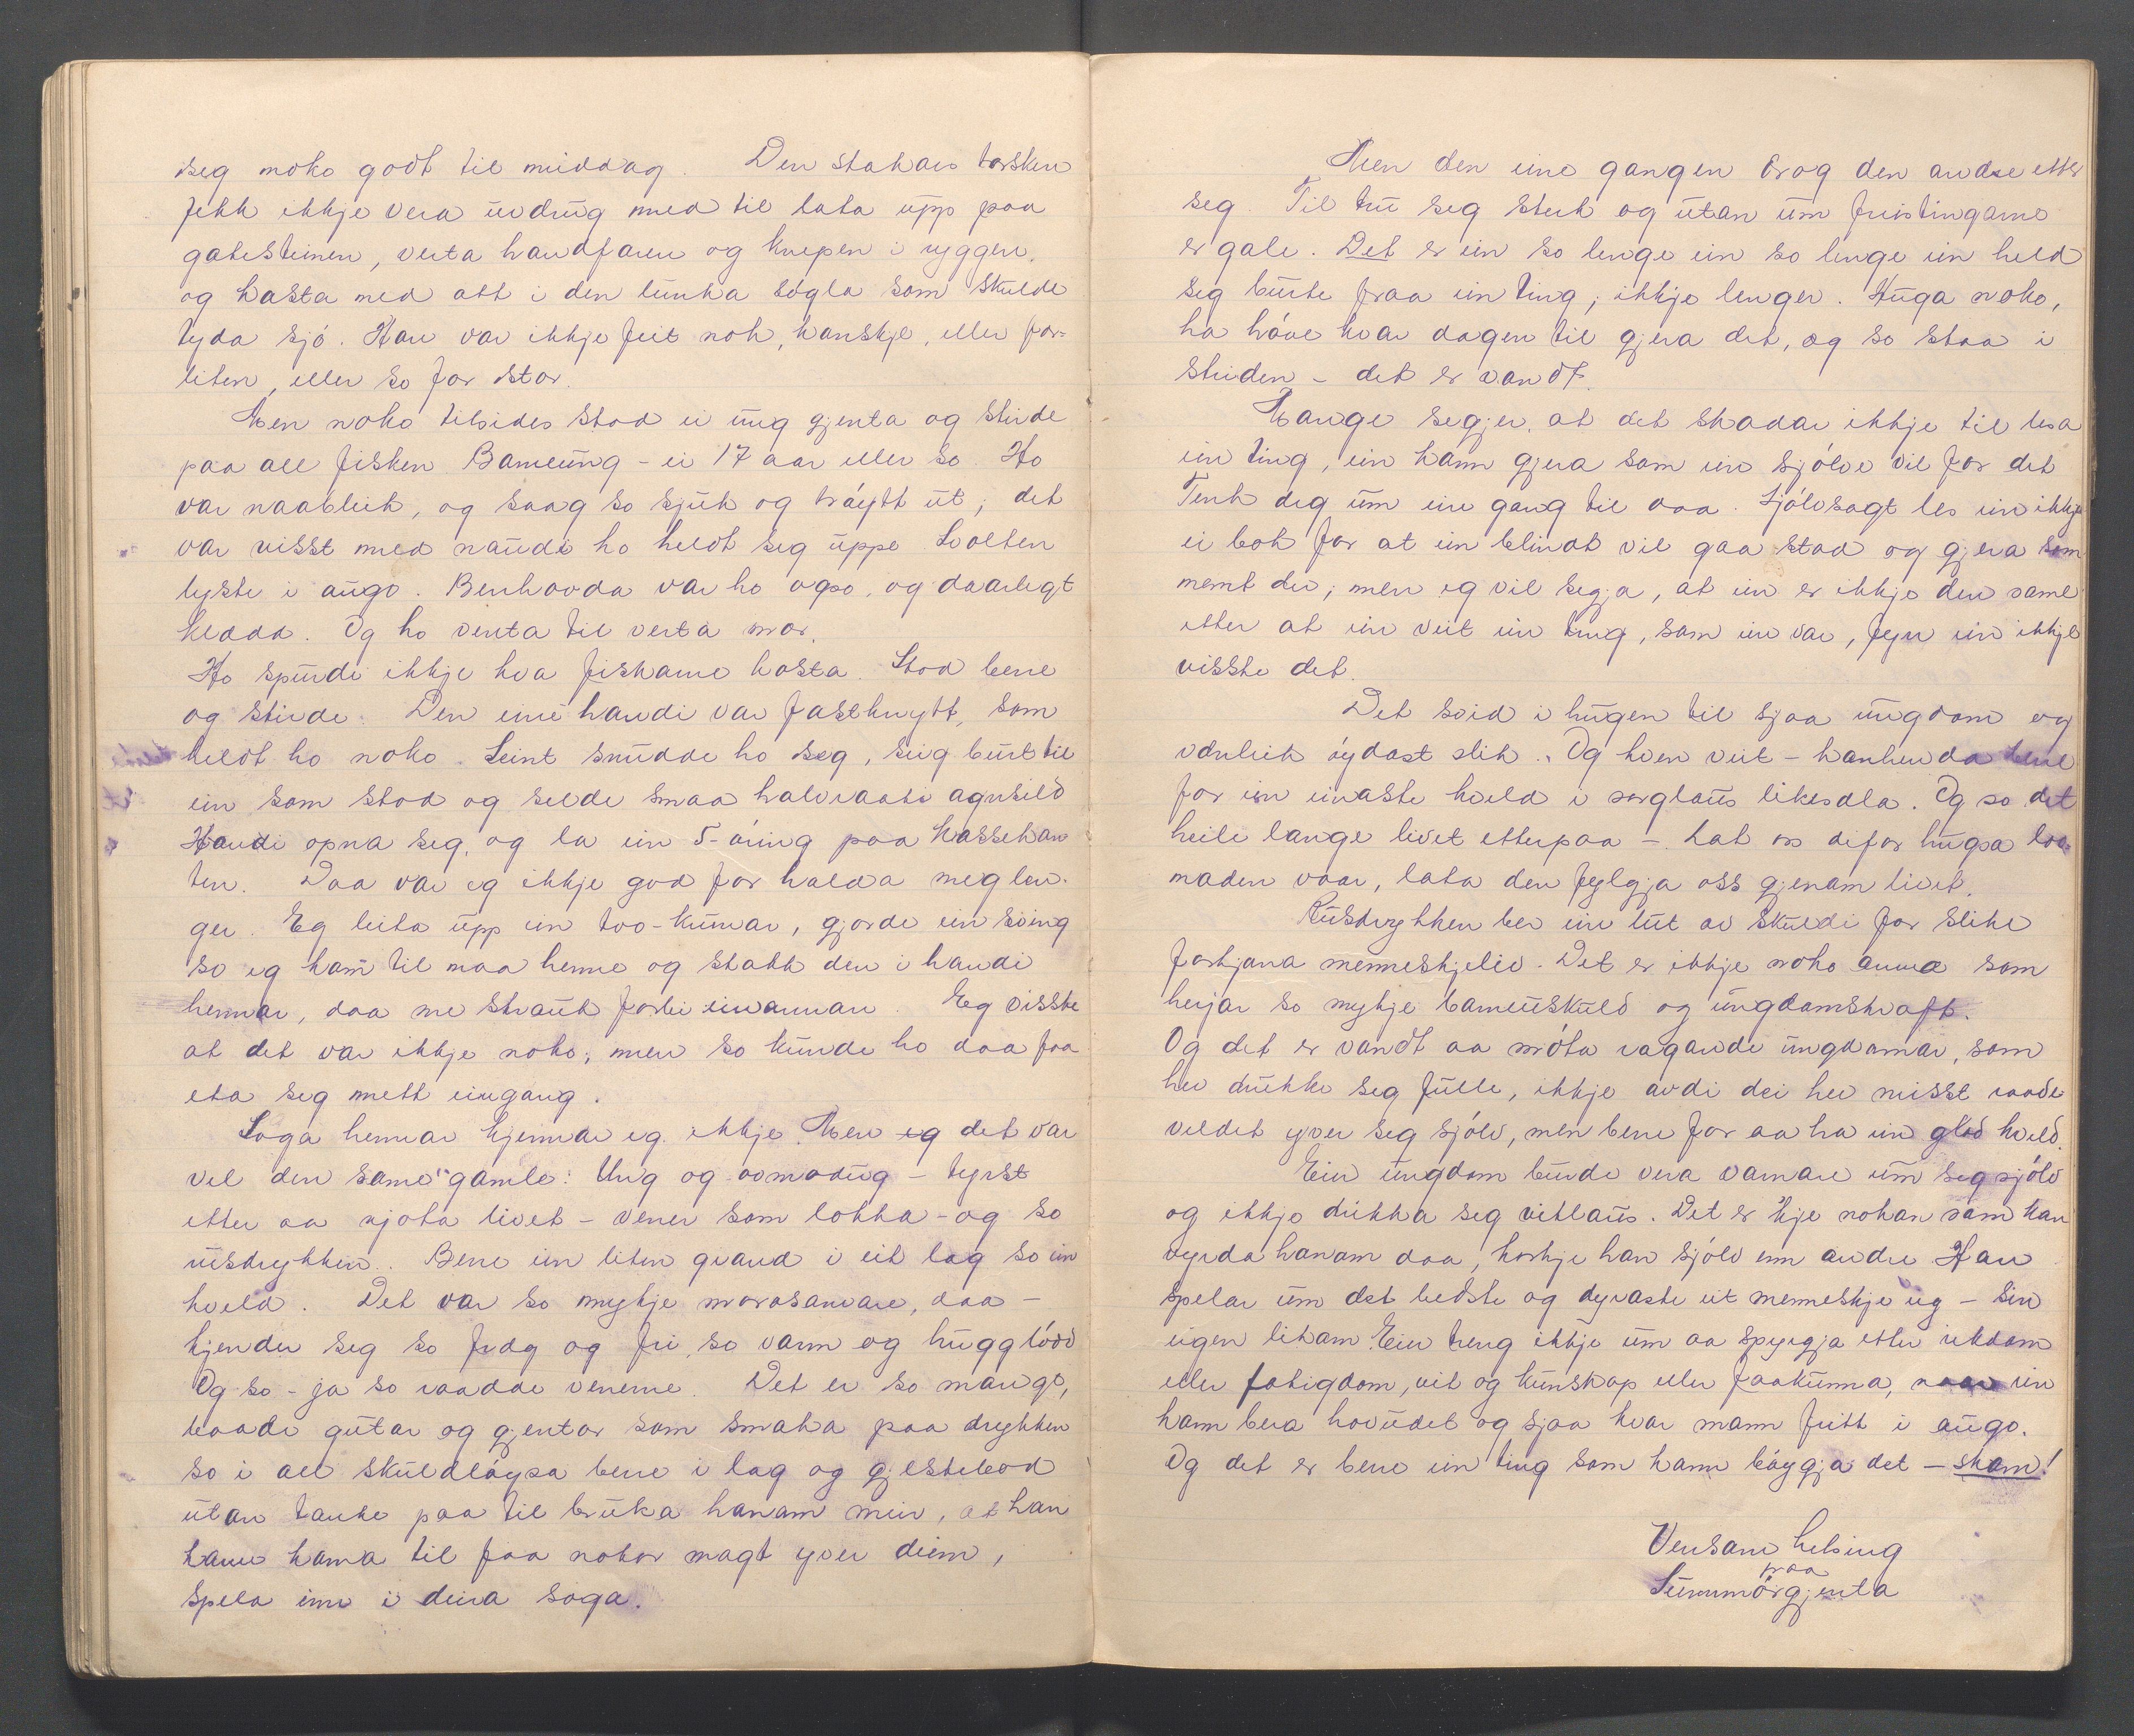 seg noko godt til middag. Den stakars torsken
fekk ikkje vera uvdrug med til taka upp paa
gatesteinen, verta handfaren og knepen i ryggen,
og kasta ned att i den lunka søgla som skulde
tyda sjó. Han var ikkje feit nok, kanskje, eller for
liten, eller so for stor.
Men noko tilsides stod ei ung gjenta og stirde
paa all fisken Bameung - ei 17 aar eller so. Ho
var naableik, og saag so sjuk og tróytt ut; det
var visst med naudi ho heldt seg uppe Svolten
lyste i augo. Berrhovda var ho ogso, og daarlegt
klædd. Og ho venta til verta mor.
Ho spurdi ikkje kva fiskarne kosta. Stod berre
og stirde. Den eine handi var fastknytt, som
heldt ho noko. Seint snudde ho seg, seig burt til
ein som stod og selde smaa halvraati agnsild
Handi opna seg, og la ein 5-óring paa kassekan
ten. Daa var eg ikkje god for halda meg len-
ger. Eg leita upp ein two-krunar, gjorde ein sving
so eg kom til móa henne og stakk den i handi
hennar, daa me strauk forbi einannan. Eg visste
at det var ikkje noko; men so kunde ho daa faa
eta seg mett eingang.
Soga hennar kjennar eg ikkje. Men eg det var
vel den same gamle: Ung og ovmodug - tyrst
etter aa njota livet - vener som lokka - og so
rusdrykken. Berre ein liten grand i eit lag so ein
kveld. Det var so mykje morosamare, daa -
kjender seg so frdg og fri, so varm og hugglódd
Og so - ja so raadde venerne. Det er so mange,
baadi gutar og gjentor som smaka paa drykken
so i all skuldlóysa berre i lag og gjestebod
utan tanke paa til bruka honom meir, at han
kann koma til faa nokor magt yver deim,
spela inn i deira soga.
Men den eine gangen drog den andre etter
seg. Til tru seg sterk og utan um freistingarne
er gale. Det er ein so lenge ein so lenge ein held
seg burte fraa ein ting; ikkje lenger. Huga noko,
ha hóve kvar dagen til gjera det, og so staa i
striden - det er vandt.
Mange segjer, at det skadar ikkje til lesa
ein ting, ein kann gjera som ein sjólv vil for det
Tenk deg um ein gang til daa. Sjólvsagt les ein ikkje
ei bok for at ein blindt vil gaa stad og gjera som
nemt der; men eg vil segja, at ein er ikkje den same
etter at ein veit ein ting, som ein var, fyrr ein ikkje
visste det.
Det svid i hugen til sjaa ungdom og
vdnleik óydast slik. Og kven veit - kanhenda berre
for ein einaste kveld i sorglaus likesdla. Og so det
heile lange livet etterpaa - Lat os difor hugsa lov-
naden vaar, lata den fylgja oss gjenom livet.
Rusdrykken ber ein lut av skuldi for slike
forkjøna menneskjeliv. Det er ikkje noko anna som
herjar so mykje barneuskuld og ungdomskraft.
Og det er vandt aa móta ragandi ungdomar, som
hev drukke seg fulle, ikkje avdi dei hev misst raade
veldet yver seg sjólv, men berre for aa ha ein glad kveld.
Ein ungdom burde vera varnare um seg sjólv
og ikkje drikka seg vitlaus. Det er 'kje nokon som kan
vyrda honom daa, korkje han sjólv enn andre Han
spelar um det bedste og dyraste eit menneskje eig - sin
eigen likam. Ein treng ikkje um aa spyrgja etter rikdom
eller fatigdom, vit og kunskap eller faakunna, naar ein
kann bera hovudet og sjaa kvar mann fritt i augo.
Og det er berre ein ting som kann bóygja det - skam!
Vensam helsing
fraa
Sunnmórgjenta